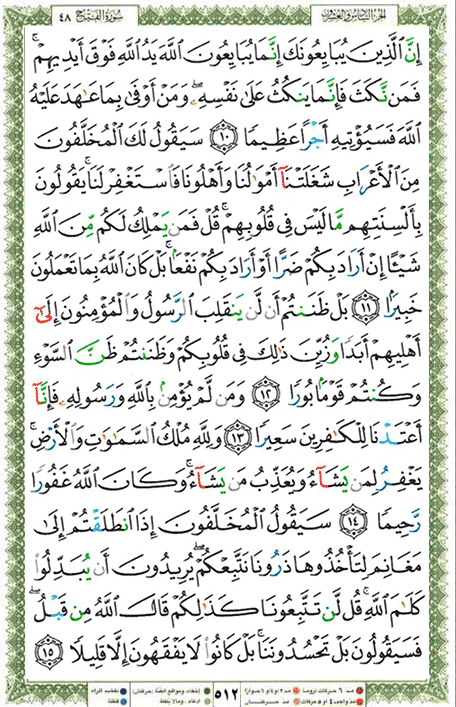 سورة الفتح ٤٨ الجزء السادس والعشرون
إِنَّ الَّذِينَ يُبَايِعُونَكَ إِنَّمَا يُبَايِعُونَ اللَّهَ يَدُ اللَّهِ فَوْقَ أَيْدِيهِمْ ۚ
فَمَن نَّكَثَ فَإِنَّمَا يَنكُثُ عَلَىٰ نَفْسِهِۦ ۖ وَمَنْ أَوْفَىٰ بِمَا عَٰهَدَ عَلَيْهُ
اللَّهَ فَسَيُؤْتِيهِ أَجْرًا عَظِيمًا ١٠ سَيَقُولُ لَكَ الْمُخَلَّفُونَ
مِنَ الْأَعْرَابِ شَغَلَتْنَآ أَمْوَٰلُنَا وَأَهْلُونَا فَاسْتَغْفِرْ لَنَا ۚ يَقُولُونَ
بِأَلْسِنَتِهِم مَّا لَيْسَ فِي قُلُوبِهِمْ ۚ قُلْ فَمَن يَمْلِكُ لَكُم مِّنَ اللَّهِ
شَيْـًٔا إِنْ أَرَادَ بِكُمْ ضَرًّا أَوْ أَرَادَ بِكُمْ نَفْعًۢا ۚ بَلْ كَانَ اللَّهُ بِمَا تَعْمَلُونَ
خَبِيرًۢا ١١ بَلْ ظَنَنتُمْ أَن لَّن يَنقَلِبَ الرَّسُولُ وَالْمُؤْمِنُونَ إِلَىٰٓ
أَهْلِيهِمْ أَبَدًا وَزُيِّنَ ذَٰلِكَ فِي قُلُوبِكُمْ وَظَنَنتُمْ ظَنَّ السَّوْءِ
وَكُنتُمْ قَوْمًۢا بُورًا ١٢ وَمَن لَّمْ يُؤْمِنۢ بِاللَّهِ وَرَسُولِهِۦ فَإِنَّآ
أَعْتَدْنَا لِلْكَٰفِرِينَ سَعِيرًا ١٣ وَلِلَّهِ مُلْكُ السَّمَٰوَٰتِ وَالْأَرْضِ ۚ
يَغْفِرُ لِمَن يَشَآءُ وَيُعَذِّبُ مَن يَشَآءُ ۚ وَكَانَ اللَّهُ غَفُورًا
رَّحِيمًا ١٤ سَيَقُولُ الْمُخَلَّفُونَ إِذَا انطَلَقْتُمْ إِلَىٰ
مَغَانِمَ لِتَأْخُذُوهَا ذَرُونَا نَتَّبِعْكُمْ ۖ يُرِيدُونَ أَن يُبَدِّلُوا
كَلَٰمَ اللَّهِ ۚ قُل لَّن تَتَّبِعُونَا كَذَٰلِكُمْ قَالَ اللَّهُ مِن قَبْلُ ۖ
فَسَيَقُولُونَ بَلْ تَحْسُدُونَنَا ۚ بَلْ كَانُوا لَا يَفْقَهُونَ إِلَّا قَلِيلًا ١٥
٥١٢